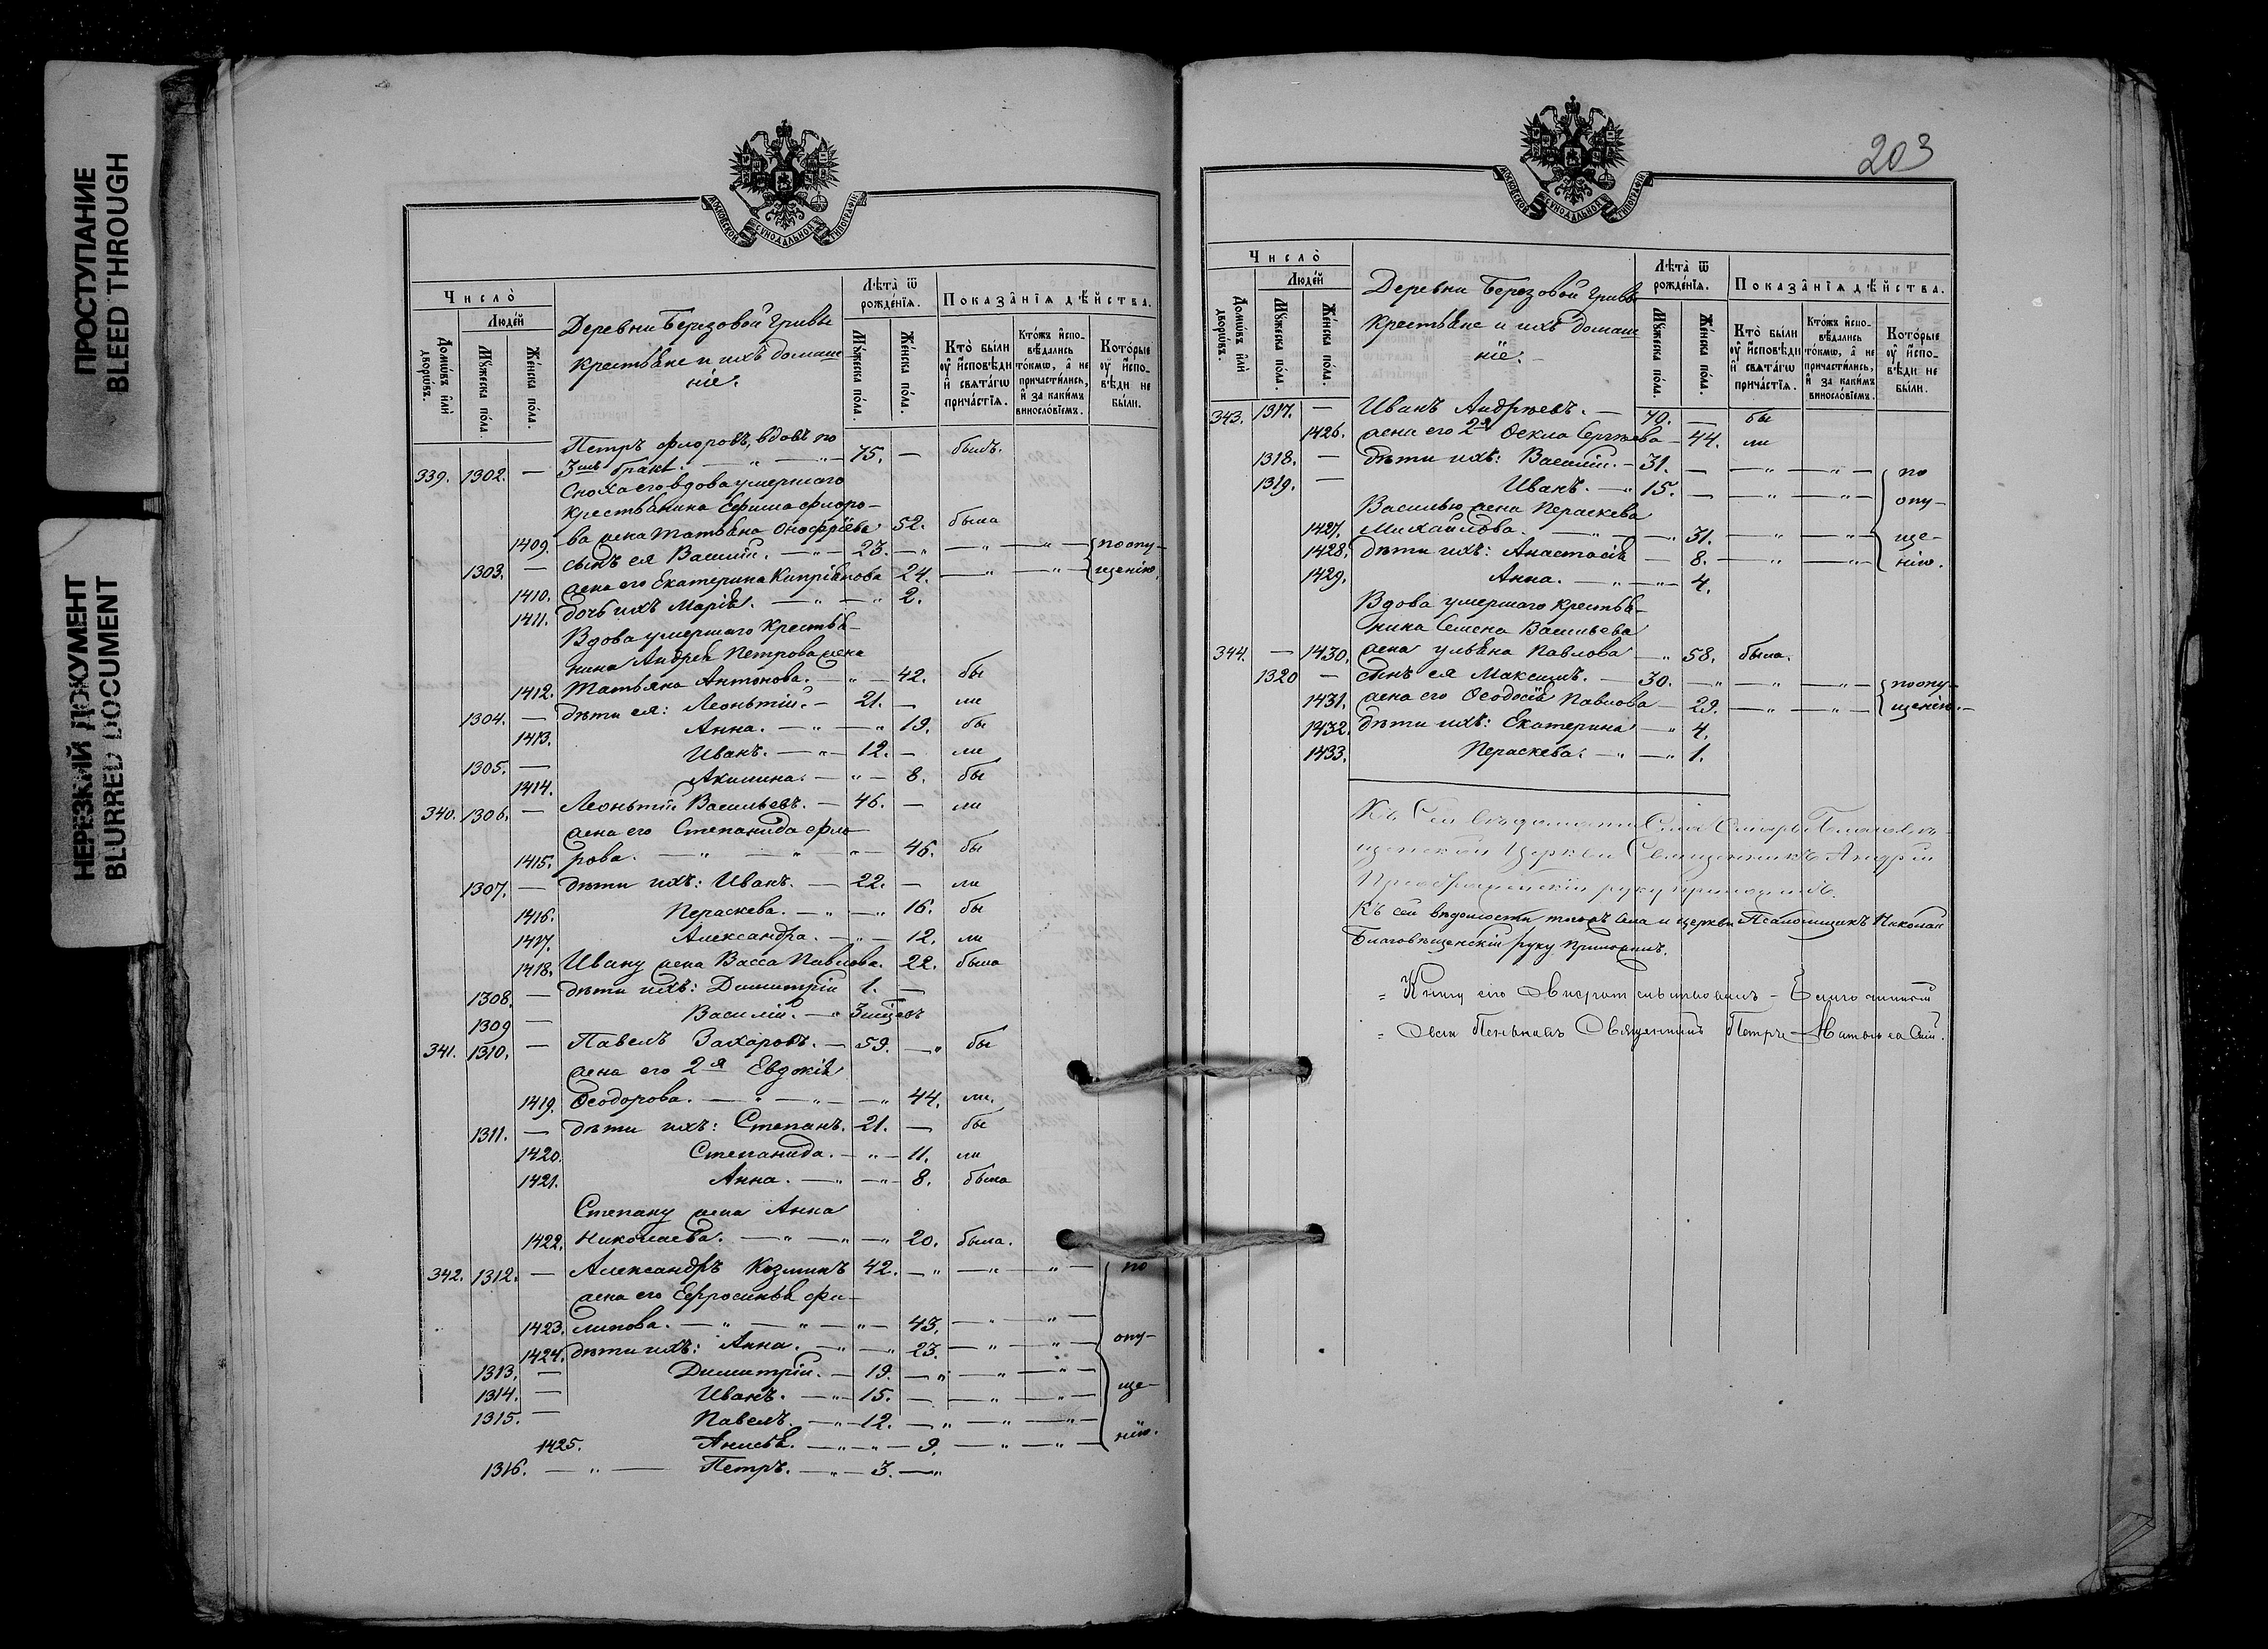 ПРОСТУПАНИЕ
BLEED THROUGH
НЕРЕЗКИЙ ДОКУМЕНТ
BLURRED DOCUMENT
МОСКОВСКОЙ СУНОДАЛЬНОЙ ТИПОГРАФІИ
Число̀
Людей
Домѡвъ или дворѡвъ.
Мꙋжеска пола.
Женска пола.
Деревни Березовой Гривы
крестьяне и ихъ домаш-
ніе.
Лѣта̀ ѿ рожденїѧ.
Мꙋжеска пола.
Женска пола.
Показанїѧ дѣйства.
Кто̀ были ѹ҆ исповѣди и свѧтагѡ причастїѧ.
Ктожъ исповѣдались токмѡ, а не причастились, и за какимъ винословїемъ.
Которые ѹ҆ исповѣди не были.
Петръ Флоровъ, вдовъ по
339. 1302. — 3мъ бракѣ. — 75. — былъ.
Сноха его вдова умершаго
крестьянина Ефима Флоро-
1409. ва жена Татьяна Онофріева 52. была
1303. — сынъ ея Василій. — 23. — по опу-
1410. жена его Екатерина Кипріянова 24. — щенію.
1411. дочь ихъ Марія. — 2.
Вдова умершаго крестья-
нина Андрея Петрова жена
1412. Татьяна Антонова. — 42. бы
1304. — дѣти ея: Леонтій. — 21. — ли
1413. Анна. — 19. бы
1305. — Иванъ. — 12. — ли
1414. Акилина. — 8. бы
340. 1306. — Леонтій Васильевъ. — 46. — ли
жена его Степанида Фло-
1415. рова. — 46. бы
1307. — дѣти ихъ: Иванъ. — 22. — ли
1416. Пераскева. — 16. бы
1417. Александра. — 12. ли
1418. Ивану жена Васса Павлова. 22. была
1308. — дѣти ихъ: Димитрій 1. —
1309 — Василій. — 3 мѣсѧцъ
341. 1310. — Павелъ Захаровъ. — 59. — бы
жена его 2я Евдокія
1419. Ѳеодорова. — 44. ли.
1311. — дѣти ихъ: Степанъ. 21. — бы
1420. Степанида. — 11. ли
1421. Анна. — 8. была
Степану жена Анна
1422. Николаева. — 20. была.
342. 1312. — Александръ Козминъ 42. — по
жена его Ефросинья Фи-
1423. липова. — 43. —
1424. дѣти ихъ: Анна. — 23. — опу-
1313. — Димитрій. — 19. —
1314. — Иванъ. — 15. — ще-
1315. — Павелъ. — 12. —
1425. Анисья. — 9. — нію.
1316. — Петръ. — 3. —
203
МОСКОВСКОЙ СУНОДАЛЬНОЙ ТИПОГРАФІИ
Число̀
Людей
Домѡвъ или дворѡвъ.
Мꙋжеска пола.
Женска пола.
Деревни Березовой Гривы
крестьяне и ихъ домаш-
ніе. —
Лѣта̀ ѿ рожденїѧ.
Мꙋжеска пола.
Женска пола.
Показанїѧ дѣйства.
Кто̀ были ѹ҆ исповѣди и свѧтагѡ причастїѧ.
Ктожъ исповѣдались токмѡ, а не причастились, и за какимъ винословїемъ.
Которые ѹ҆ исповѣди не были.
343. 1317. — Иванъ Андреевъ. — 70. — бы
1426. жена его 2я Ѳекла Сергѣева — 44. ли
1318. — дѣти ихъ: Василій. — 31. — по
1319. — Иванъ. — 15. — опу-
Василью жена Пераскева
1427. Михайлова. — 31. — ще-
1428. дѣти ихъ: Анастасія — 8. — нію.
1429. Анна. — 4.
Вдова умершаго крестья-
нина Семена Васильева
344. — 1430. жена Ульяна Павлова — 58. была.
1320 — сынъ ея Максимъ. — 30. — по опу-
1431. жена его Ѳеодосія Павлова — 29. — щенію. —
1432. дѣти ихъ: Екатерина — 4.
1433. Пераскева. — 1.
Къ сей вѣдомости Села Благовѣ-
щенской Церкви Священникъ Андрей
Преображенскій руку приложилъ.
Къ сей вѣдомости тогожъ села и церкви Псаломщикъ Николай
Благовѣщенскій руку приложилъ.
Книгу сію свидѣтельствовалъ — Благочинный
Священникъ Петръ